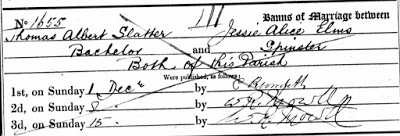 No 1655 Banns of Marriage between
Thomas Albert Slatter Jessie Alice Elms
Bachelor and Spinster
Both of this Parish
Were published, as follows:
1st, on Sunday 1 Decr by
2d, on Sunday 8 by
3d, on Sunday 15 by